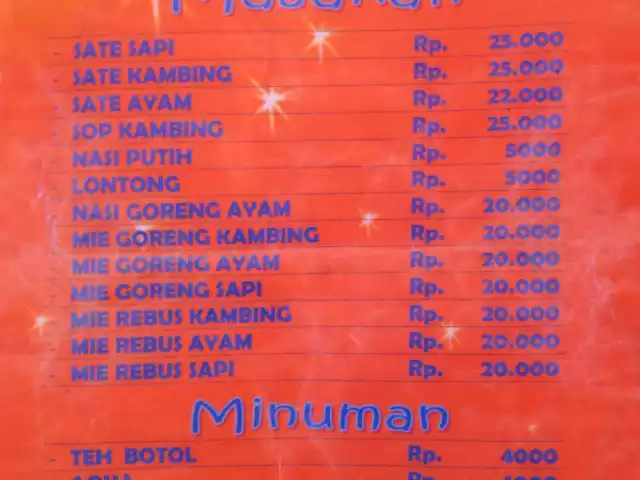 Masakan
- SATE SAPI Rp. 25.000
- SATE KAMBING Rp. 25.000
- SATE AYAM Rp. 22.000
- SOP KAMBING Rp. 25.000
- NASI PUTIH Rp. 5000
- LONTONG Rp. 5000
- NASI GORENG AYAM Rp. 20.000
- MIE GORENG KAMBING Rp. 20.000
- MIE GORENG AYAM Rp. 20.000
- MIE GORENG SAPI Rp. 20.000
- MIE REBUS KAMBING Rp. 20.000
- MIE REBUS AYAM Rp. 20.000
- MIE REBUS SAPI Rp. 20.000
Minuman
- TEH BOTOL Rp. 4000